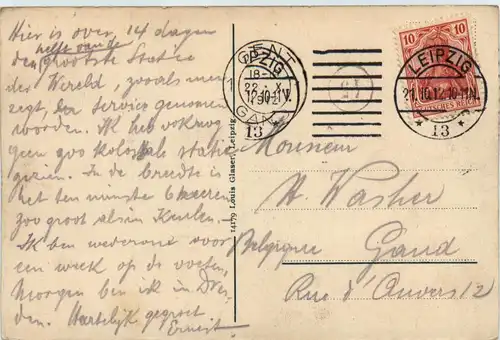 Hier is over 14 dagen
helft van de
den grootste Statie
des Wereld, zooals men
zegt, der Service genomen
worden. Ik heb ook nog
geen zoo kolossale statie
gezien. In de breedte is
het ten minste 6 keeren
zoo groot als in Keulen.
Ik ben wederom voor
een week op de voeten,
morgen ben ik in Dres-
den. Hartelijk gegroet
Ernest
14179 Louis Glaser, Leipzig
GENT
GAND
LEIPZIG
13
10
DEUTSCHES REICH
LEIPZIG
21.10.12.10-11N.
* 13 *
Monsieur
H. Washer
Belgique Gand
Rue d'Anvers 12